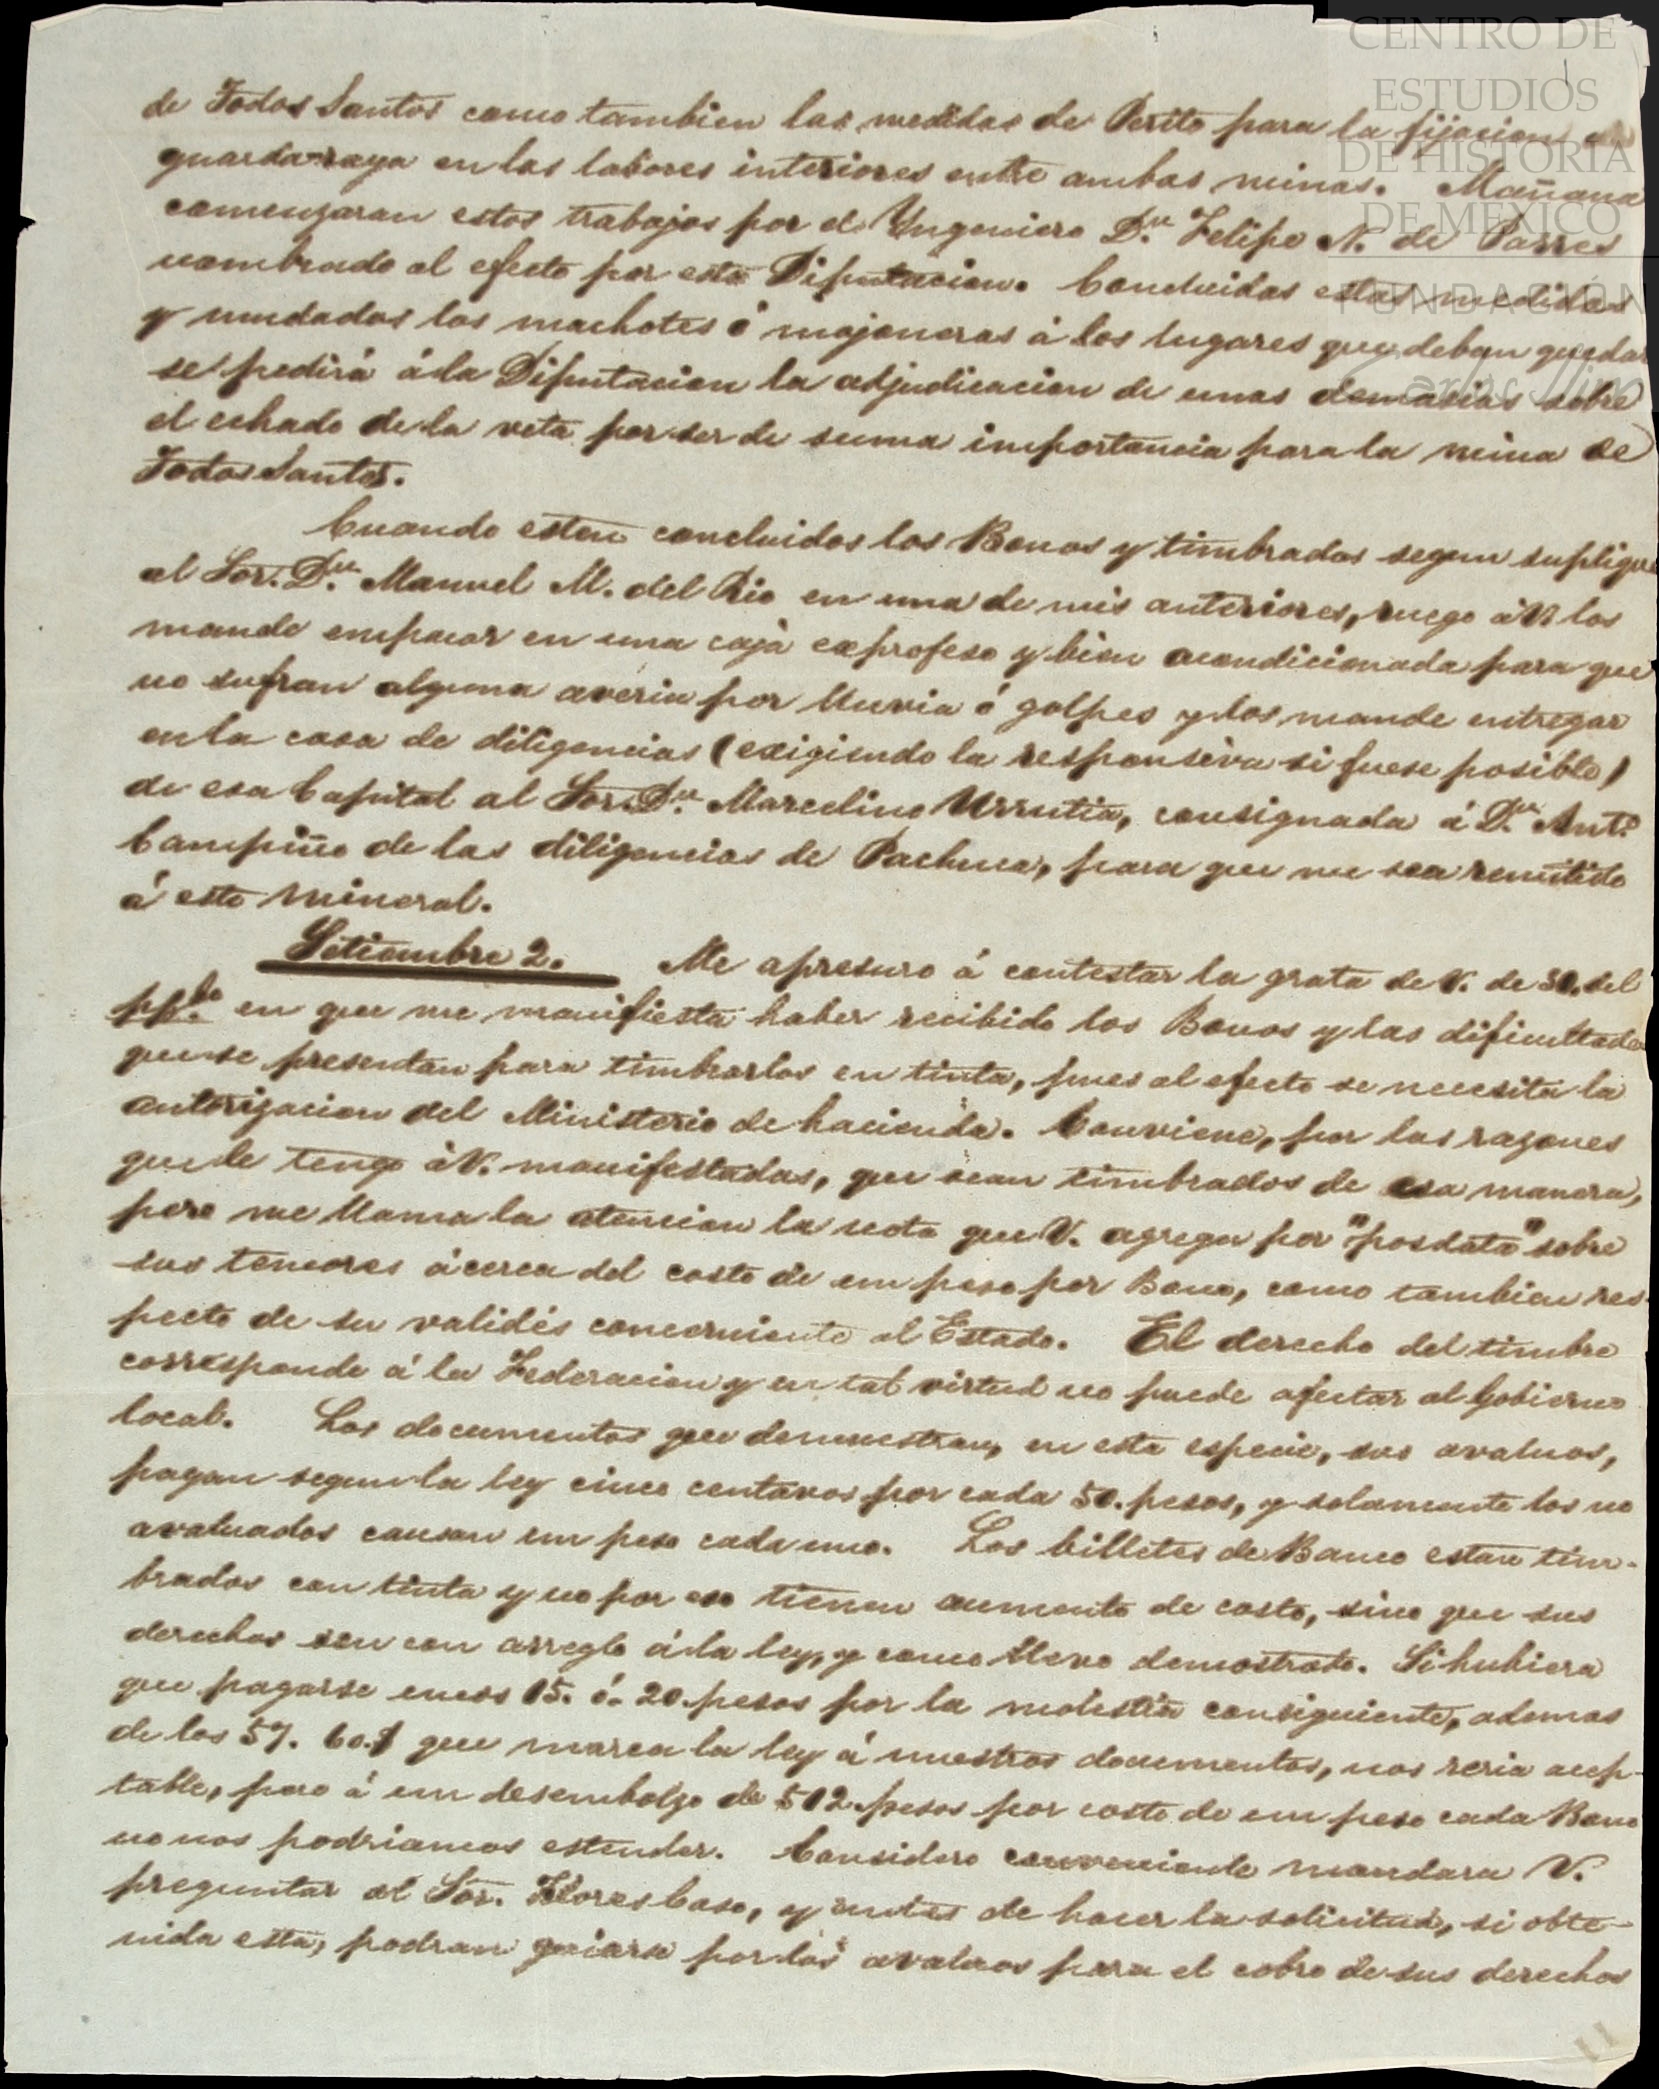 CENTRO DE
ESTUDIOS
DE HISTORIA
DE MEXICO
FUNDACIÓN
de Todos Santos como tambien las medidas de Perito para la fijacion de
guarda-raya en las labores interiores entre ambas minas. Mañana
comenzaran estos trabajos por el Yngeniero D.n Felipe N. de Parres
nombrado al efecto por esta Diputacion. Concluidas estas medidas
y mudados los machotes ó mojoneras á los lugares que deban quedar
se pedirá á la Diputacion la adjudicacion de unas demasias sobre
el echado de la veta por ser de suma importancia para la mina de
Todos Santos.
Cuando esten concluidos los Bonos y timbrados segun supliqué
al Sor. D.n Manuel M. del Rio en una de mis anteriores, ruego á V. los
mande empacar en una caja exprofeso y bien acondicionada para que
no sufran alguna averia por lluvia ó golpes y los mande entregar
en la casa de diligencias (exigiendo la responsiva si fuese posible)
de esa Capital al Sor. D.n Marcelino Urrutia, consignada á D.n Ant.o
Campiño de las diligencias de Pachuca, para que me sea remitido
á este mineral.
Setiembre 2. Me apresuro á contestar la grata de V. de 30. del
pp.do en que me manifiesta haber recibido los Bonos y las dificultades
que se presentan para timbrarlos en tinta, pues al efecto se necesita la
autorizacion del Ministerio de hacienda. Conviene, por las razones
que le tengo á V. manifestadas, que sean timbrados de esa manera,
pero me llama la atencion la nota que V. agrega por "posdata" sobre
sus temores ácerca del costo de un peso por Bono, como tambien res-
pecto de su validés concerniente al Estado. El derecho del timbre
corresponde á la Federacion y en tal virtud no puede afectar al Gobierno
local. Los documentos que demuestran, en esta especie, sus avaluos,
pagan segun la ley cinco centavos por cada 50. pesos, y solamente los no
avaluados causan un peso cada uno. Los billetes de Banco estan tim-
brados con tinta y no por eso tienen aumento de costo, sino que sus
derechos son con arreglo á la ley, y como llevo demostrado. Si hubiera
que pagarse unos 15. ó 20. pesos por la molestia consiguiente, ademas
de los 57. 60. $ que marca la ley á nuestros documentos, nos seria acep-
table, pero á un desembolzo de 512. pesos por costo de un peso cada Bono
no nos podriamos estender. Considero conveniente mandara V.
preguntar al Sor. Flores Caso, y antes de hacer la solicitud, si obte-
nida esta, podran guiarse por los avaluos para el cobro de sus derechos